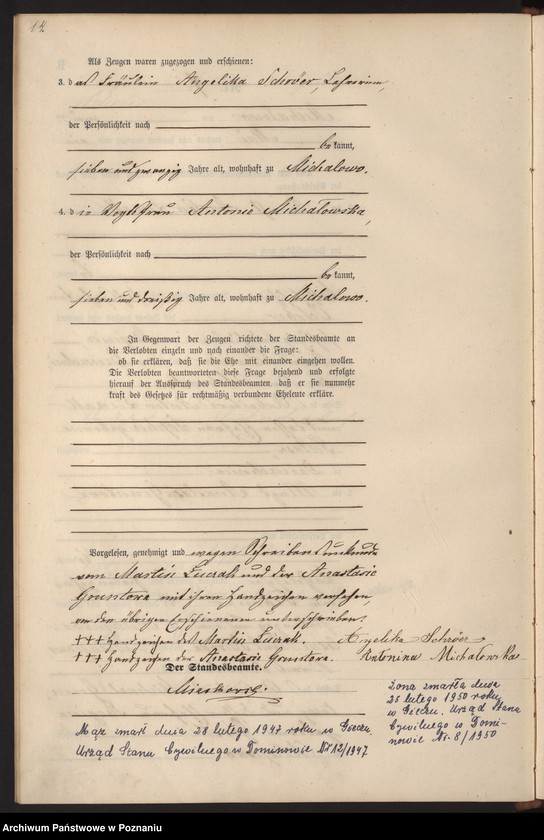 14
Als Zeugen waren zugezogen und erschienen:
3. d as Fräulein Angelika Schröer, Lehrerin,
der Persönlichkeit nach
be kannt,
sieben und zwanzig Jahre alt, wohnhaft zu Michalowo.
4. d ie Vogtsfrau Antonie Michałowska,
der Persönlichkeit nach
be kannt,
sieben und dreißig Jahre alt, wohnhaft zu Michalowo.
In Gegenwart der Zeugen richtete der Standesbeamte an
die Verlobten einzeln und nach einander die Frage:
ob sie erklären, daß sie die Ehe mit einander eingehen wollen.
Die Verlobten beantworteten diese Frage bejahend und erfolgte
hierauf der Ausspruch des Standesbeamten, daß er sie nunmehr
kraft des Gesetzes für rechtmäßig verbundene Eheleute erkläre.
Vorgelesen, genehmigt und wegen Schreibensunkunde
vom Martin Łuczak und der Anastasie
Gruntora mit ihren Handzeichen versehen,
von den übrigen Erschienenen unterschrieben.
+++ Handzeichen des Martin Łuczak. Angelika Schröer
+++ Handzeichen der Anastasie Gruntora. Antonina Michałowska
Der Standesbeamte.
Mąż zmarł dnia 28 lutego 1947 roku w Gieczu.
Urząd Stanu Cywilnego w Dominowie Nr 12/1947
Żona zmarła dnia
25 lutego 1950 roku
w Gieczu. Urząd Stanu
Cywilnego w Domi-
nowie Nr. 8/1950
Archiwum Państwowe w Poznaniu